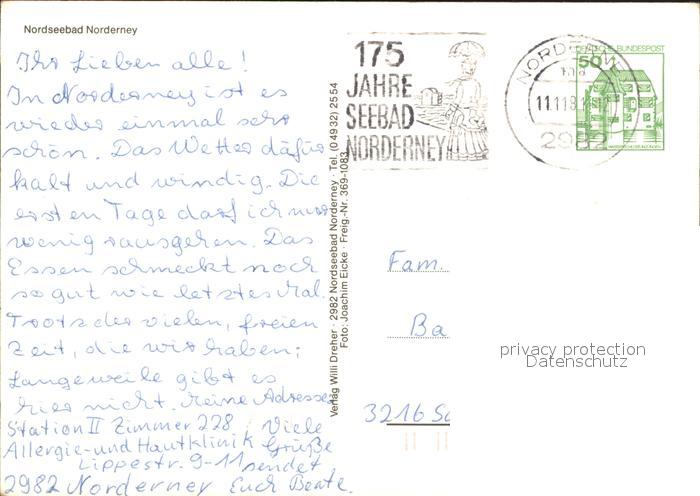 Nordseebad Norderney
Ihr Lieben alle!
In Norderney ist es
wieder einmal sehr
schön. Das Wetter dafür
kalt und windig. Die
ersten Tage darf ich nur
wenig rausgehen. Das
Essen schmeckt noch
so gut wie letztes Mal.
Trotz der vielen, freien
Zeit, die wir haben;
Langeweile gibt es
hier nicht. Meine Adresse
Station II Zimmer 228
Allergie- und Hautklinik
Lippestr. 9-11
2982 Norderney
Viele
Grüße
sendet
Euch Beate.
Verlag Willi Dreher · 2982 Nordseebad Norderney · Tel. (04932) 2554
Foto: Joachim Eicke · Freig.-Nr. 369-1083
175
JAHRE
SEEBAD
NORDERNEY
NORDERNEY
11.11.8
2982
DEUTSCHE BUNDESPOST
50
Fam.
Ba
3216 Sa
privacy protection
Datenschutz